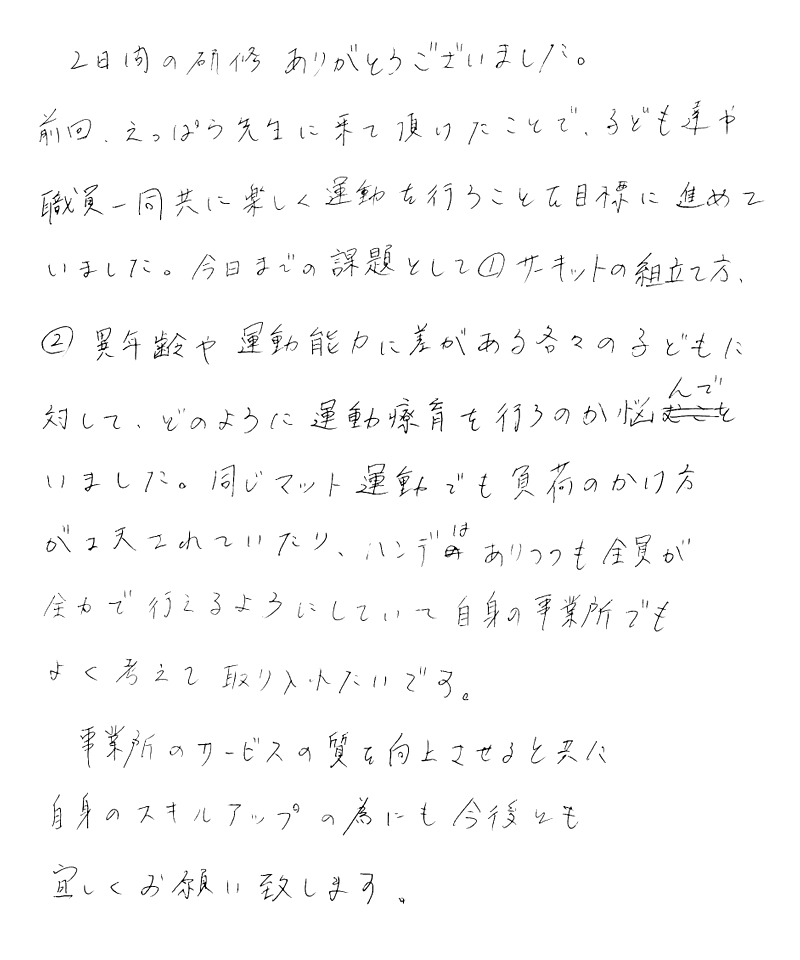 2日間の研修 ありがとうございました。
前回、えっぱら先生に来て頂けたことで、子ども達や
職員一同共に楽しく運動を行うことを目標に進めて
いました。今日までの課題として①サーキットの組立て方、
②異年齢や運動能力に差がある各々の子どもに
対して、どのように運動療育を行うのか悩んで
いました。同じマット運動でも負荷のかけ方
が工夫されていたり、ハンデはありつつも全員が
全力で行えるようにしていて自身の事業所でも
よく考えて取り入れたいです。
事業所のサービスの質を向上させると共に
自身のスキルアップの為にも今後とも
宜しくお願い致します。